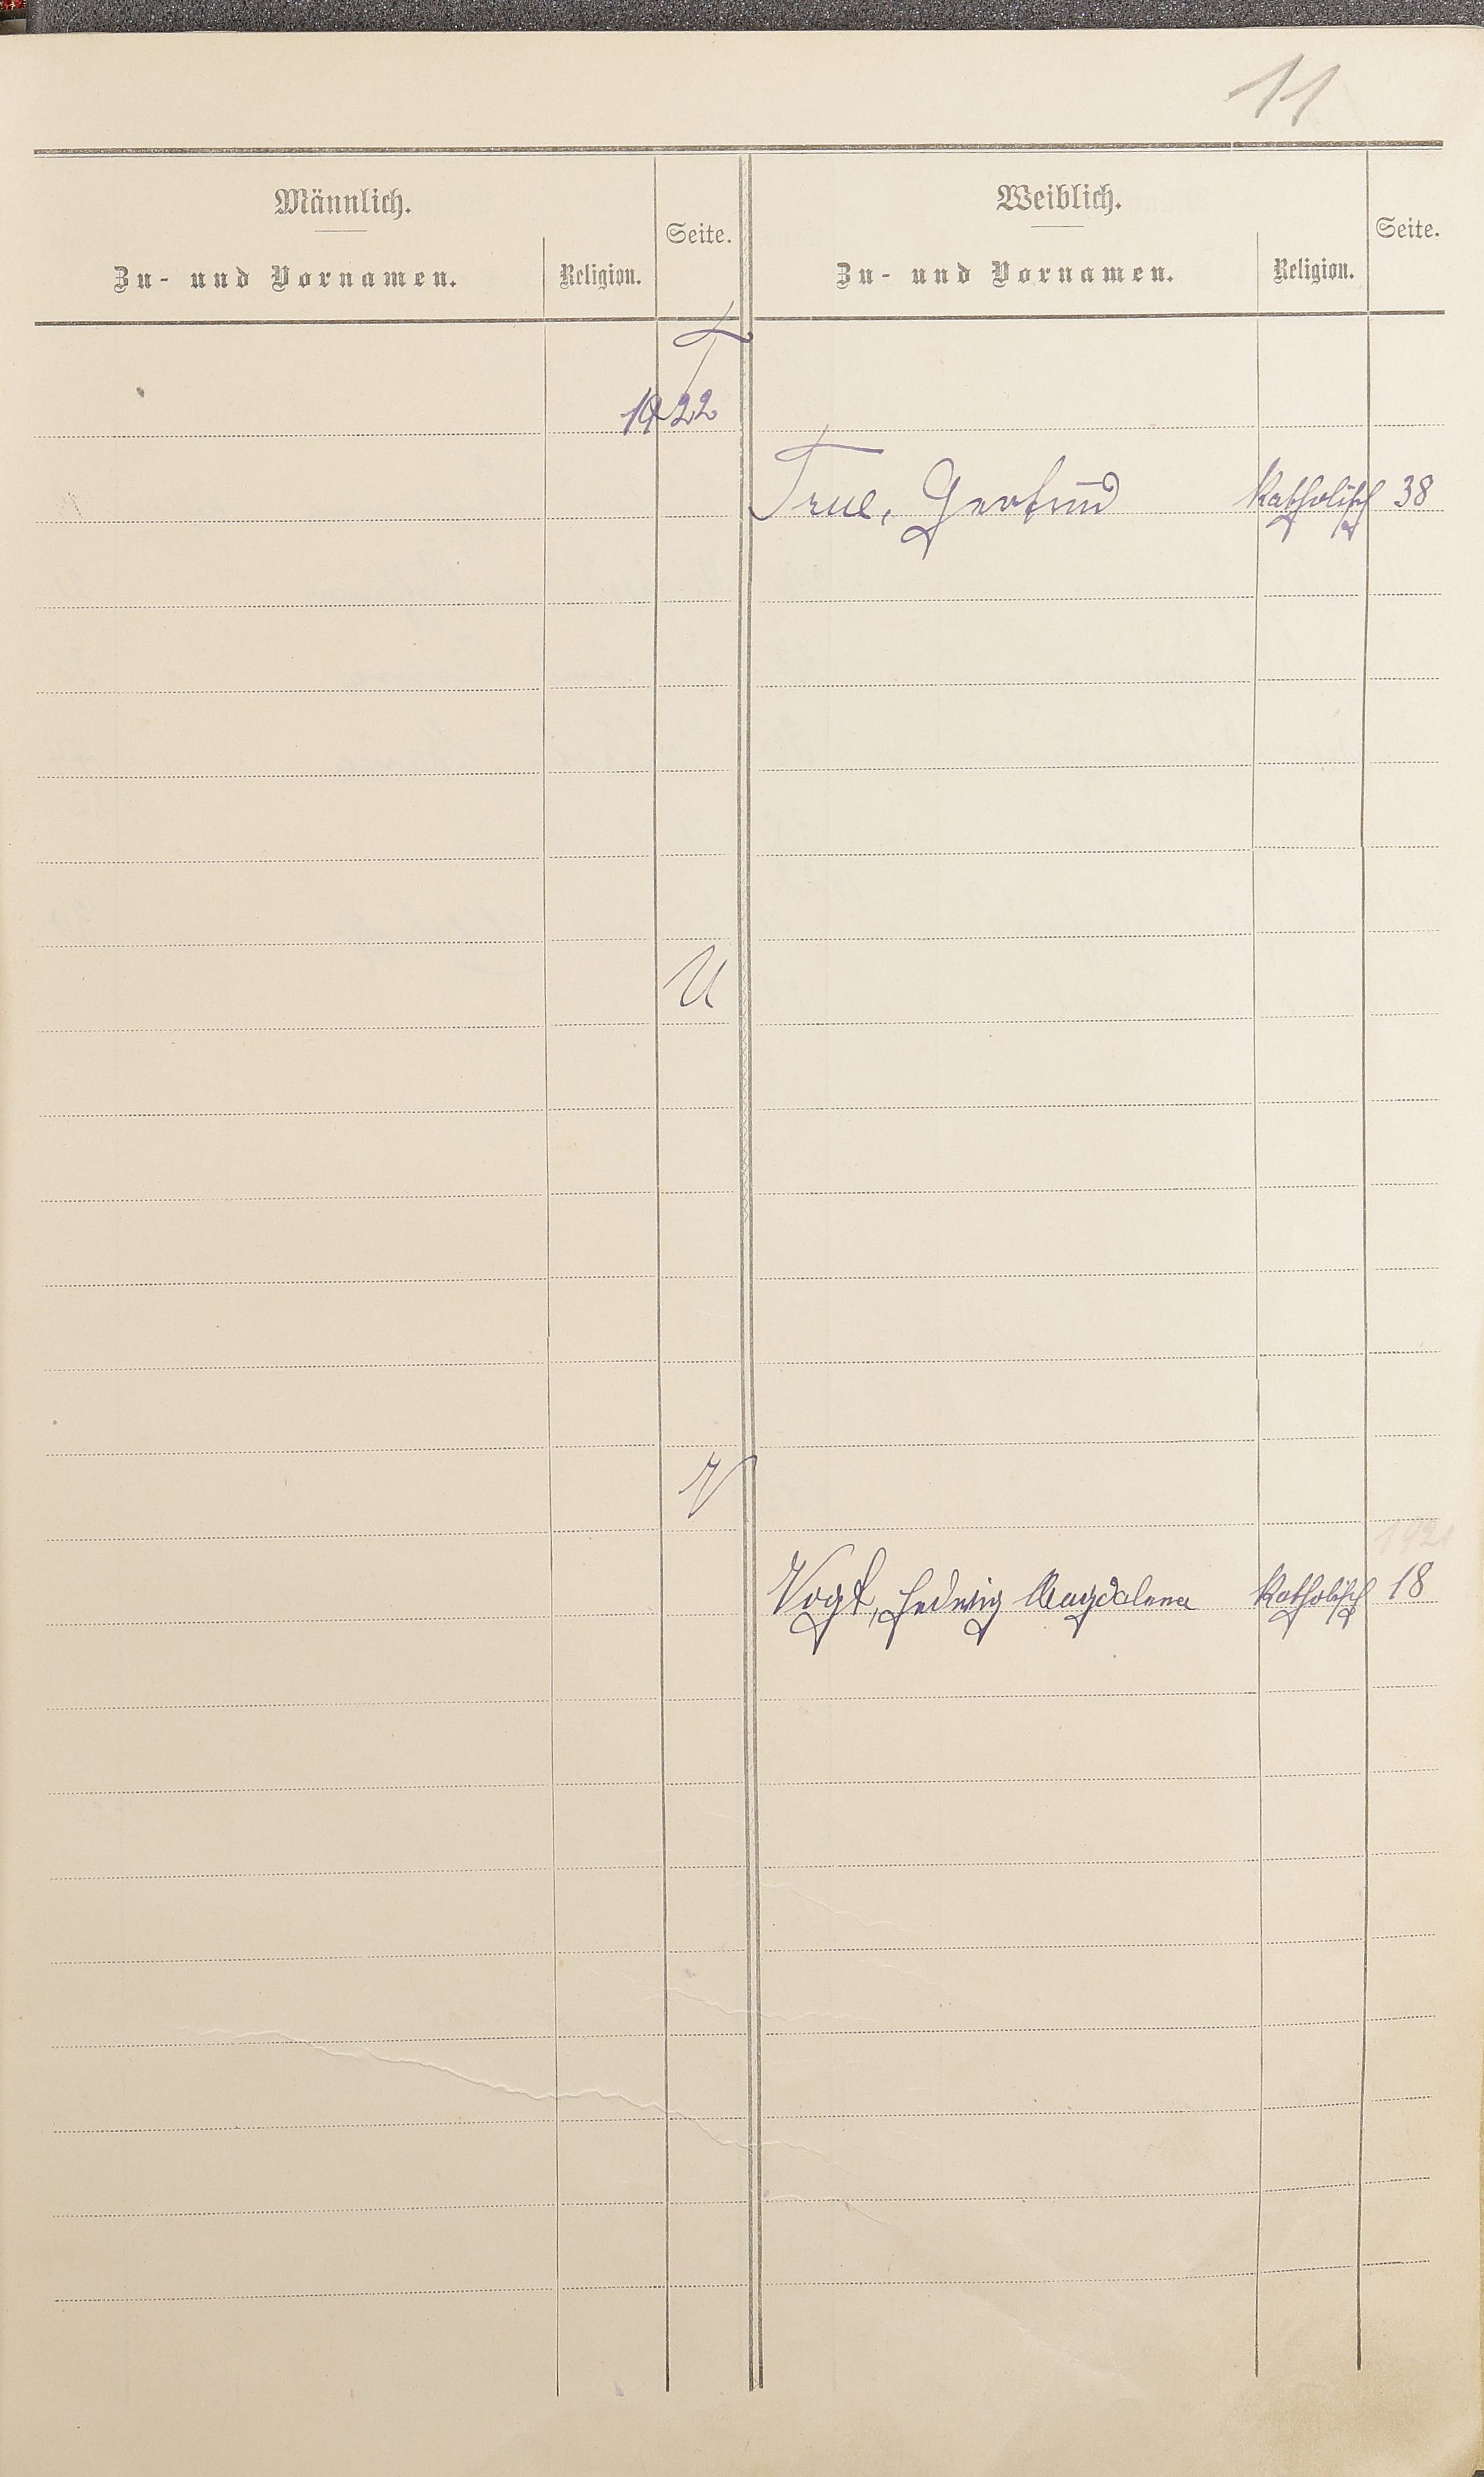 11
Männlich.
Weiblich.
Zu- und Vornamen.
Religion.
Seite.
Zu- und Vornamen.
Religion.
Seite.
T
1922
True, Gertrud
katholisch
38
U
V
1921
Vogt, Hedwig Magdalena
katholisch
18